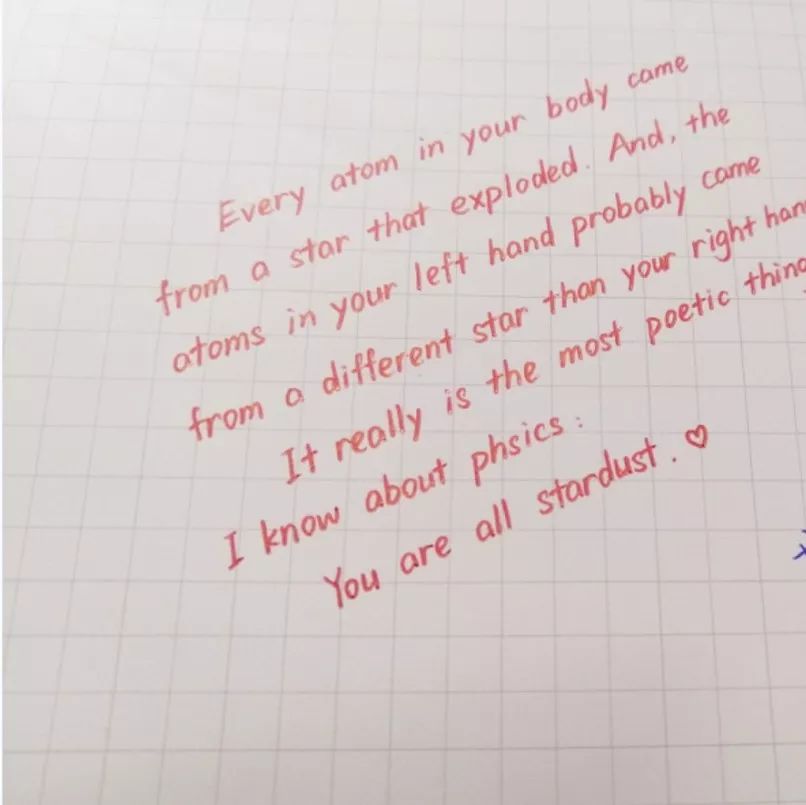 Every atom in your body came
from a star that exploded. And, the
atoms in your left hand probably came
from a different star than your right han
It really is the most poetic thing
I know about phsics:
You are all stardust. ♡